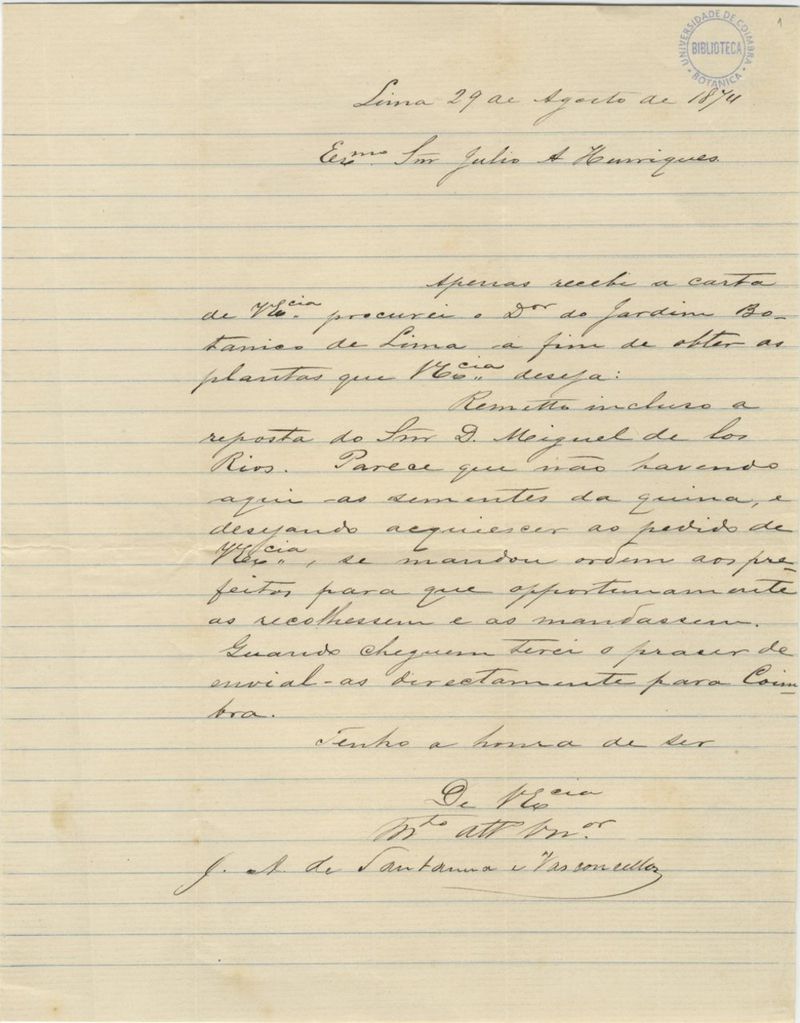 1
UNIVERSIDADE DE COIMBRA
BIBLIOTECA
BOTANICA
Lima 29 de Agosto de 1874
Exmo. Snr Julio A Henriques
Apenas recebi a carta
de VExcia. procurei o Dor do Jardim Bo-
tanico de Lima a fim de obter as
plantas que VExcia. deseja:
Remetto incluso a
reposta do Snr D. Miguel de los
Rios. Parece que não havendo
aqui as sementes da quina, e
desejando acquiescer ao pedido de
VExcia., se mandou ordem aos pre-
feitos para que opportunamente
as recolhessem e as mandassem.
Quando cheguem terei o praser de
envial-as directamente para Coim-
bra.
Tenho a honra de ser
De VExcia
Mto att Vnor.
J. A. de Santanna e Vasconcellos